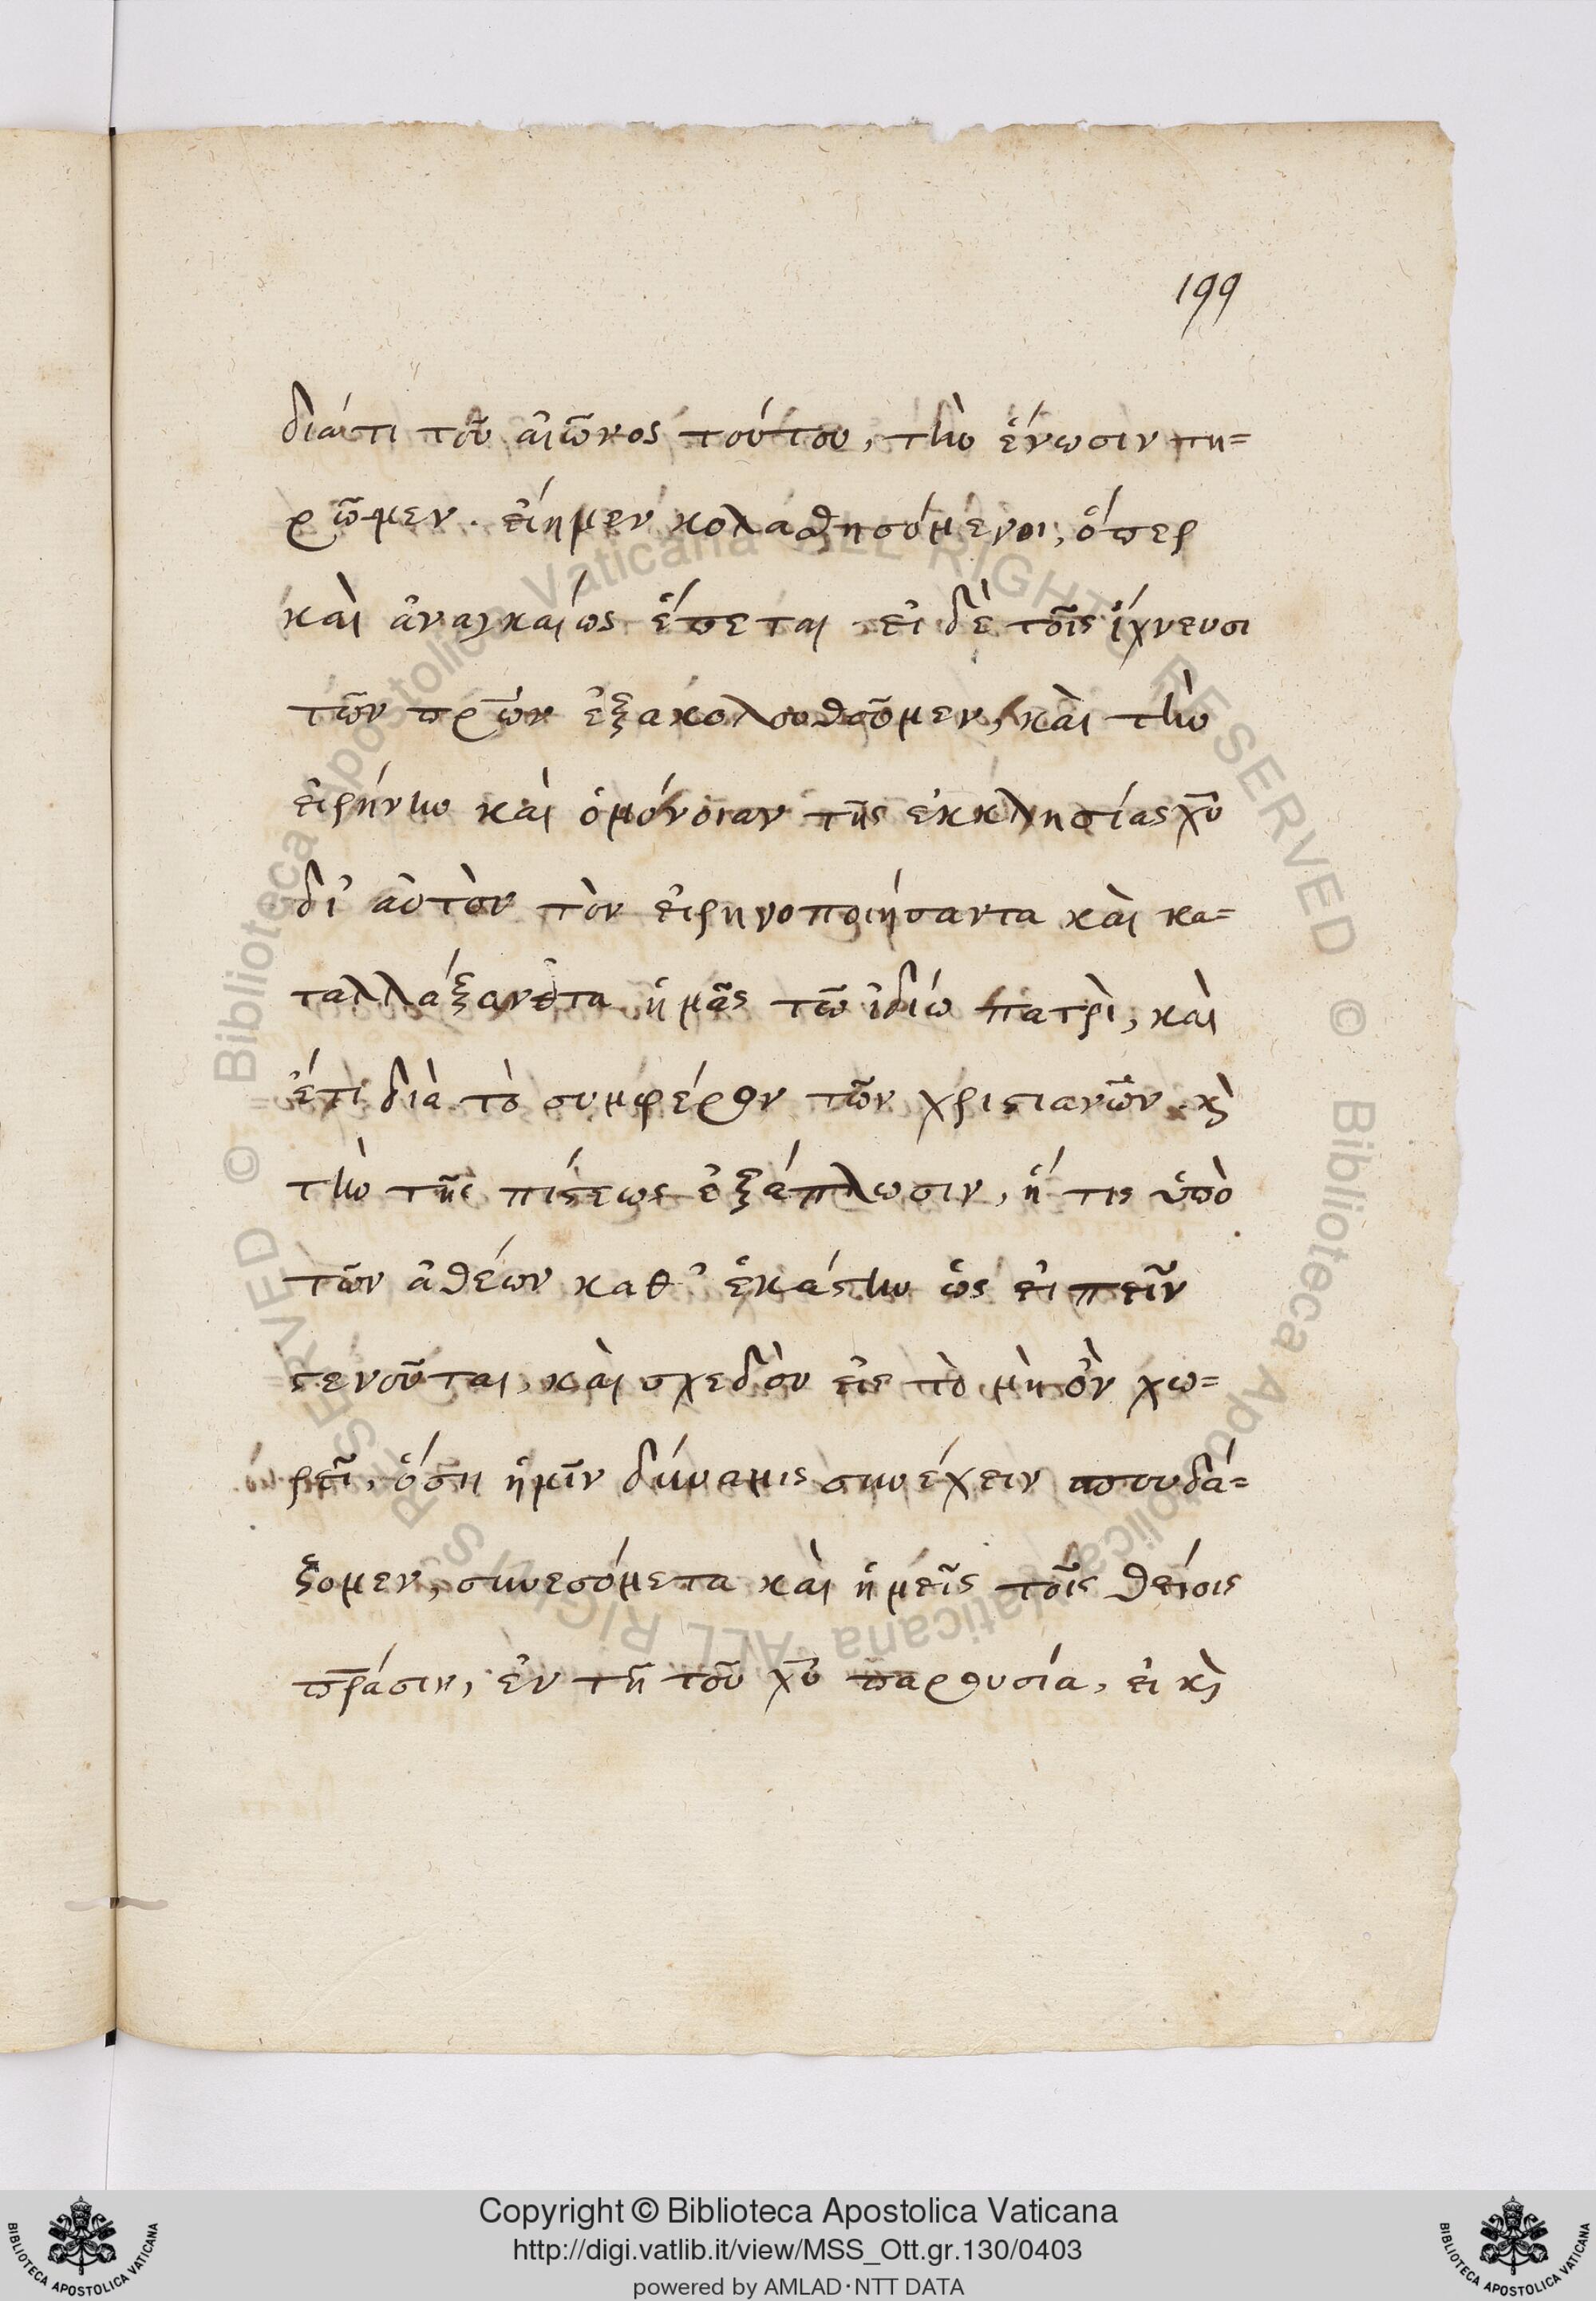 199
διάτι τοῦ αἰῶνος τούτου, τὴν ἕνωσιν πη=
ρῶμεν. εἴημεν κολασθησόμενοι, ὅπερ
καὶ ἀναγκαίως ἕπεται. εἰ δὲ τοῖς ἴχνευσι
τῶν πρ̅ων ἐξακολουθοῦμεν, καὶ τὴν
εἰρήνην καὶ ὁμόνοιαν τῆς ἐκκλησίας χ̅υ
δι' αὐτὸν τὸν εἰρηνοποιήσαντα καὶ κα=
ταλλάξαντα ἡμᾶς τῶ ἰδίω πατρὶ, καὶ
ἔτι διὰ τὸ συμφέρον τῶν χριστιανῶν. κ̀
τὴν τῆς πίστεως ἐξάπλωσιν, ἥ τις ὑπὸ
τῶν ἀθέων καθ' ἑκάστην ὡς εἰπεῖν
στενοῦται, καὶ σχεδὸν εἰς τὸ μὴ ὂν χω=
ρεῖ, ὅση ἡμῖν δύναμις συνέχειν σπουδά=
ξομεν, συνεσόμετα καὶ ἡμεῖς τοῖς θείοις
πρ̅άσιν, ἐν τῆ τοῦ χ̅υ παρουσία, εἰ κ̀
© Biblioteca Apostolica Vaticana ALL RIGHTS RESERVED © Biblioteca Apostolica Vaticana ALL RIGHTS RESERVED
Copyright © Biblioteca Apostolica Vaticana
http://digi.vatlib.it/view/MSS_Ott.gr.130/0403
powered by AMLAD·NTT DATA
BIBLIOTECA APOSTOLICA VATICANA
BIBLIOTECA APOSTOLICA VATICANA